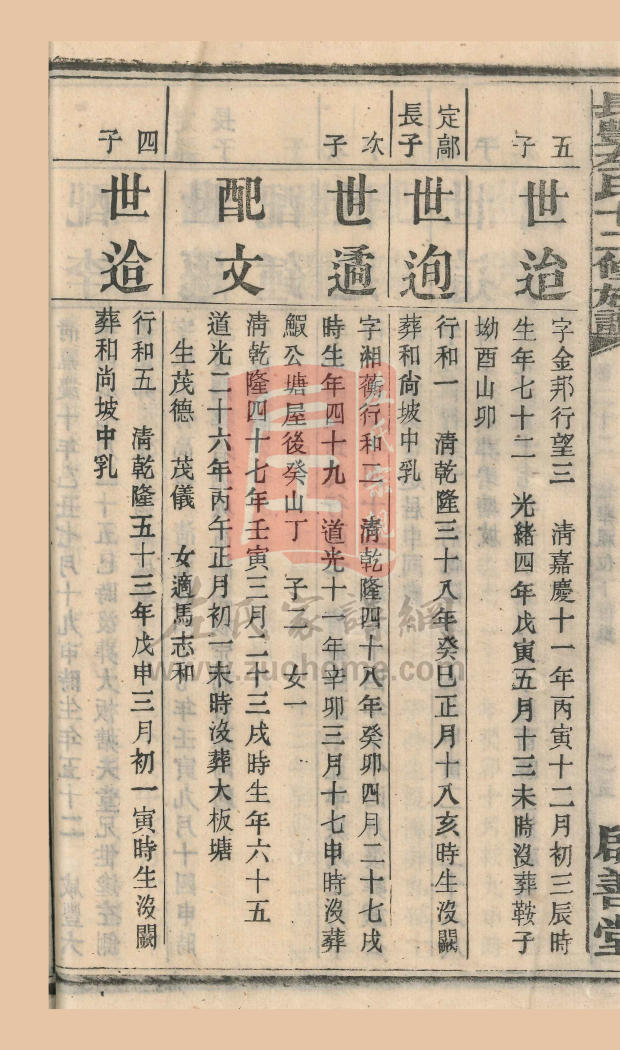 五子
世治
字金邦行望三　清嘉慶十一年丙寅十二月初三辰時
生年七十二　光緒四年戊寅五月十三未時沒葬鞍子
坳酉山卯
定鄗長子
世迿
行和一　清乾隆三十八年癸巳正月十八亥時生沒闕
葬和尙坡中乳
次子
世遹
字湘衡行和三　清乾隆四十八年癸卯四月二十七戌
時生年四十九　道光十一年辛卯三月十七申時沒葬
鰕公塘屋後癸山丁　子二　女一
配文
清乾隆四十七年壬寅三月二十三戌時生年六十五
道光二十六年丙午正月初一未時沒葬大板塘
生茂德　茂儀　女適馬志和
四子
世迨
行和五　清乾隆五十三年戊申三月初一寅時生沒闕
葬和尙坡中乳
啟善堂
左氏家譜網
www.zuohome.com